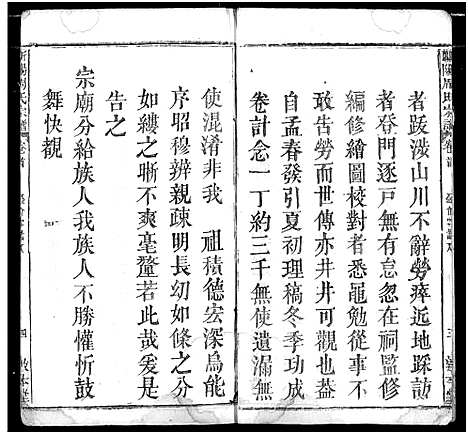 者跋涉山川不辭勞瘁近地踩訪
者登門逐戸無有怠忽在祠監修
編修校對者悉黽勉從事不
敢告勞而世傳亦井井可觀矣
自孟春發引夏初理稿冬季功成
卷計念一丁約三千無使遺漏無
使混淆非我　祖積德宏深烏能
序昭穆辨親疎明長幼如條之
如縷之晰不爽毫釐若此哉爰是
告之
宗廟分給族人我族人不勝懽忻鼓
舞快覩
卷首
三
四
敦本堂